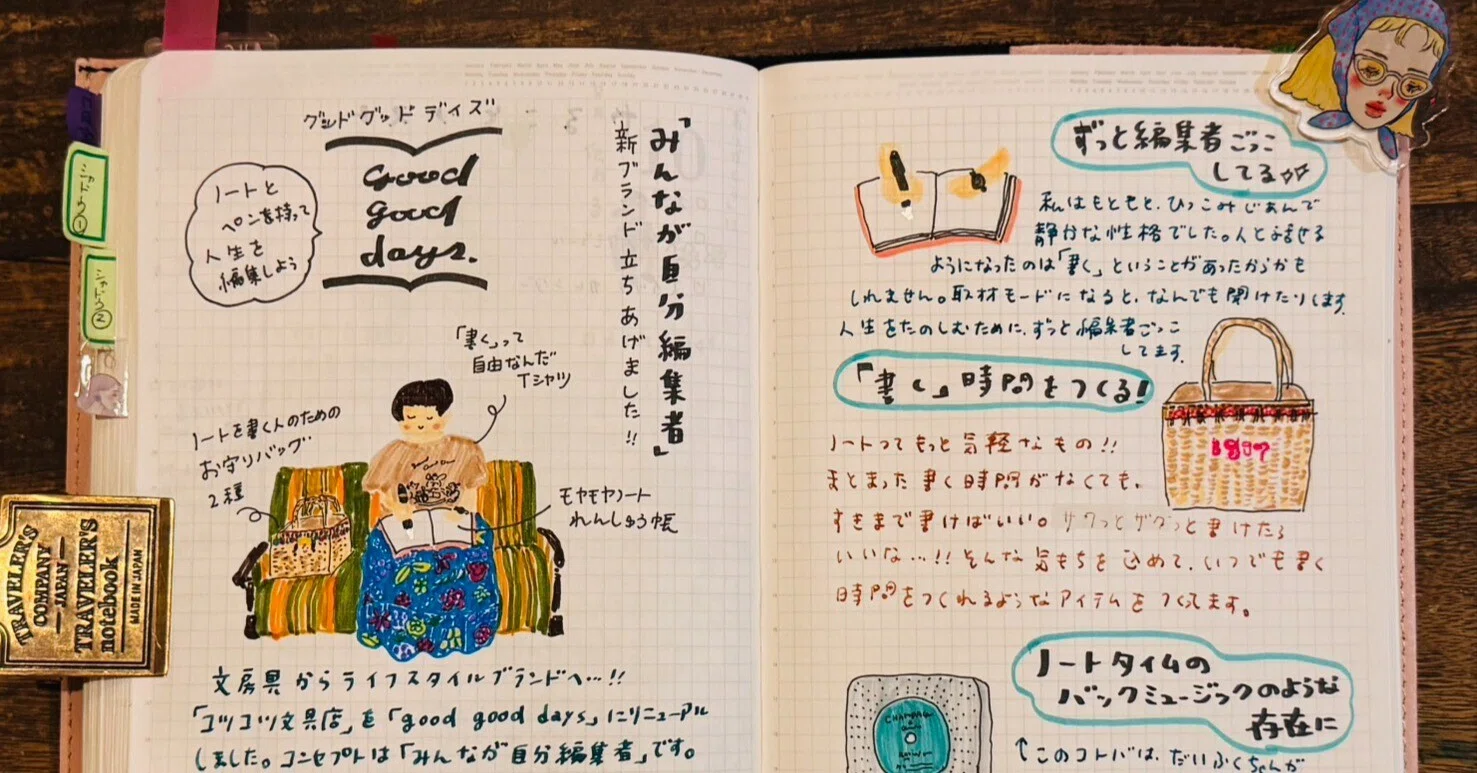 グッドグッドデイズ
good
good
days.
「みんなが自分編集者」
新ブランド立ちあげました!!
ノートと
ペンを持って
人生を
編集しよう
「書く」って
自由なんだ
Tシャツ
ノートを書く人のための
お守りバッグ
2種
モヤモヤノート
れんしゅう帳
文房具からライフスタイルブランドへ…!!
「コツコツ文具店」を「good good days」にリニューアル
しました。コンセプトは「みんなが自分編集者」です。
シャドウ①
シャドウ②
TRAVELER'S
COMPANY
JAPAN
TRAVELER'S
notebook
MADE IN JAPAN
ずっと編集者ごっこ
してる
私はもともと、ひっこみじあんで
静かな性格でした。人と話せる
ようになったのは「書く」ということがあったからかも
しれません。取材モードになると、なんでも聞けたりします
人生をたのしむために、ずっと編集者ごっこ
してます。
「書く」時間をつくる!
ノートってもっと気軽なもの!!
まとまった書く時間がなくても、
すきまで書けばいい。サクっとザクっと書けたら
いいな…!!そんな気もちを込めて、いつでも書く
時間をつくれるようなアイテムをつくってます。
ノートタイムの
バックミュージックのような
存在に
↑このコトバは、だいふくちゃんが